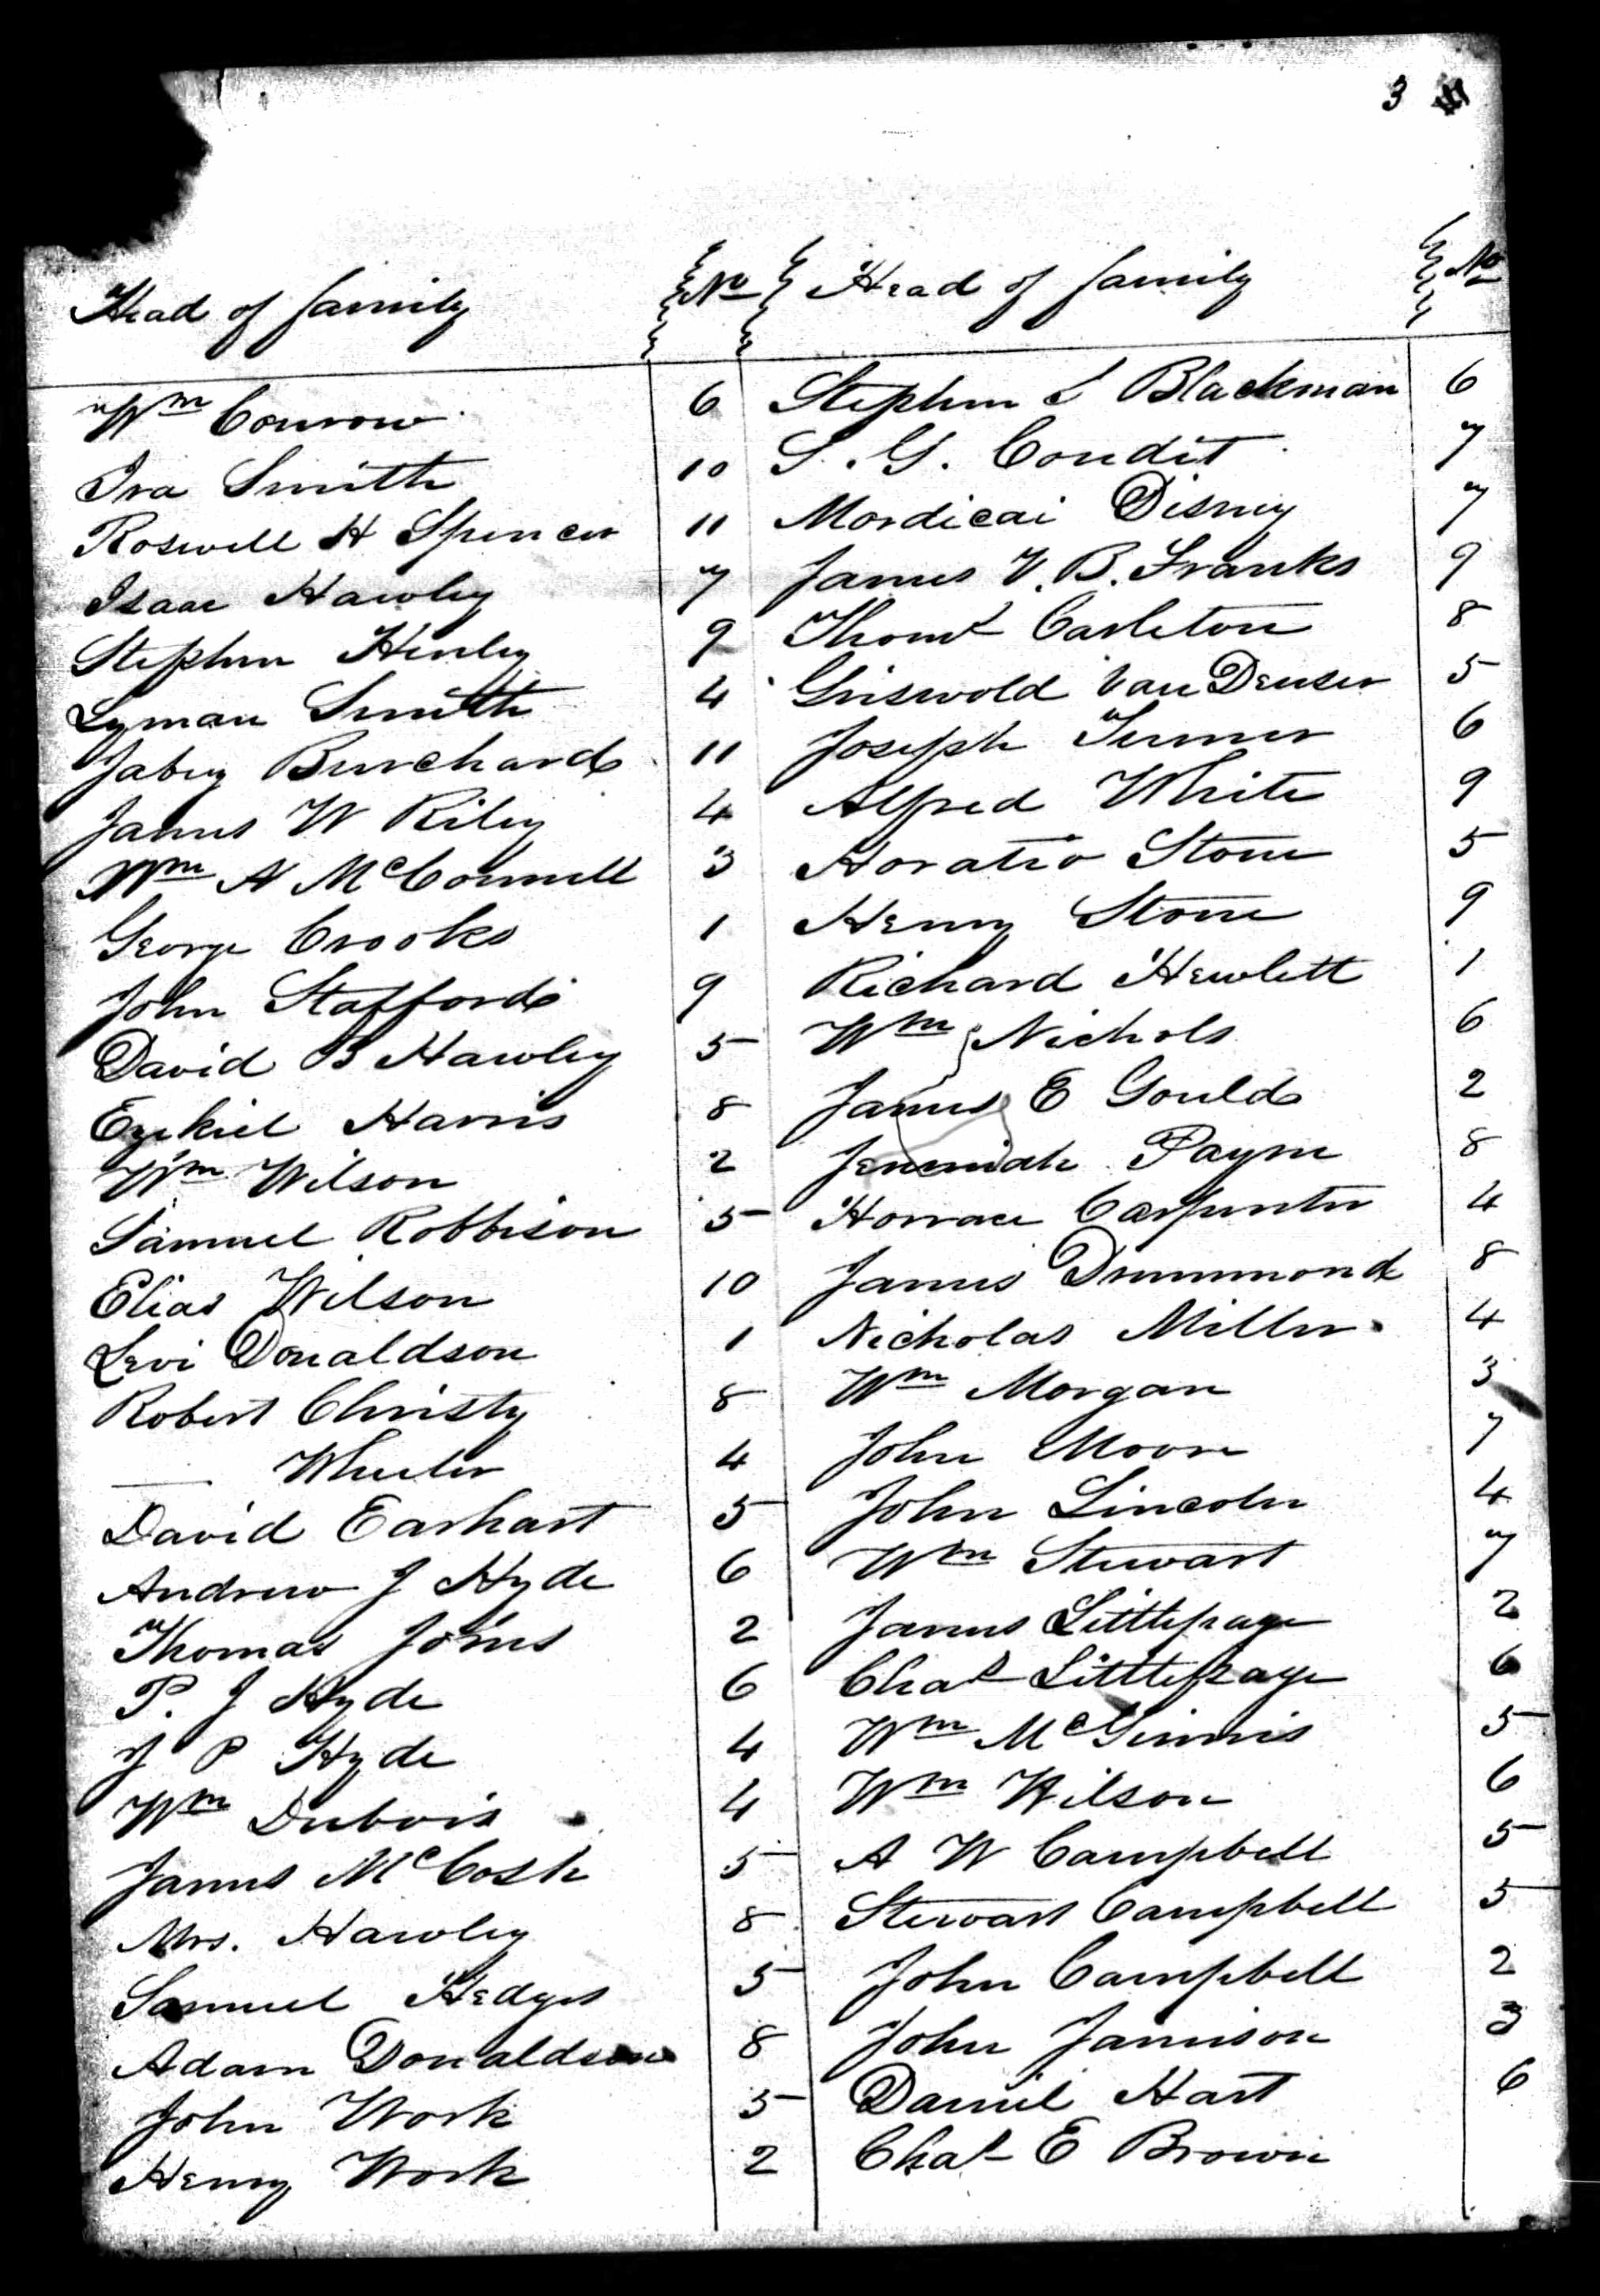 3
Head of family No Head of family No
Wm Conrow 6 Stephen S Blackman 6
Ira Smith 10 S. G. Condit 7
Roswell H Spencer 11 Mordicai Disney 7
Isaac Hawley 7 James V. B. Franks 9
Stephen Henley 9 Thoms Carleton 8
Lyman Smith 4 Griswold Van Deuser 5
Jabez Burchard 11 Joseph Turner 6
James W Riley 4 Alfred White 9
Wm A McConnell 3 Horatio Stone 5
George Crooks 1 Henry Stone 9
John Stafford 9 Richard Hewlett 1
David B Hawley 5 Wm Nichols 6
Ezekiel Harris 8 James E Gould 2
Wm Wilson 2 Jeremiah Payne 8
Samuel Robbison 5 Horrace Carpenter 4
Elias Wilson 10 James Drummond 8
Levi Donaldson 1 Nicholas Miller 4
Robert Christy 8 Wm Morgan 3
— Wheeler 4 John Moore 7
David Earhart 5 John Lincoln 4
Andrew J Hyde 6 Wm Stewart 7
Thomas Jones 2 James Littlepage 2
P. J Hyde 6 Chas Littlepage 6
J P Hyde 4 Wm McGinnis 5
Wm Dubois 4 Wm Wilson 6
James McCosh 5 A W Campbell 5
Mrs. Hawley 8 Stewart Campbell 5
Samuel Hedges 5 John Campbell 2
Adam Donaldson 8 John Jamison 3
John Work 5 Daniel Hart 6
Henry Work 2 Chas E Brown